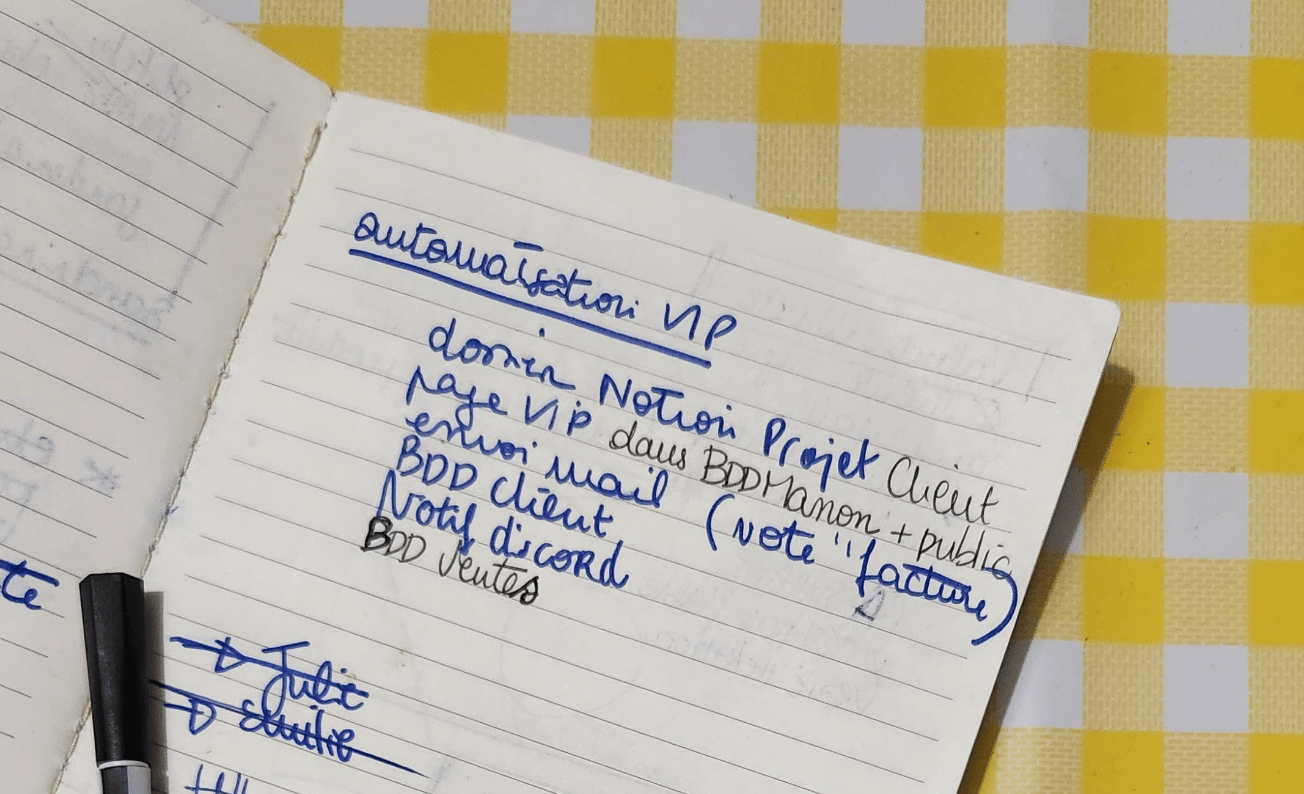 automatisation VIP
dossier Notion Projet Client
page VIP dans BDD Manon + public
envoi mail (note "facture)
BDD client
Notif discord
BDD ventes
→ Julie
→ emilie
te